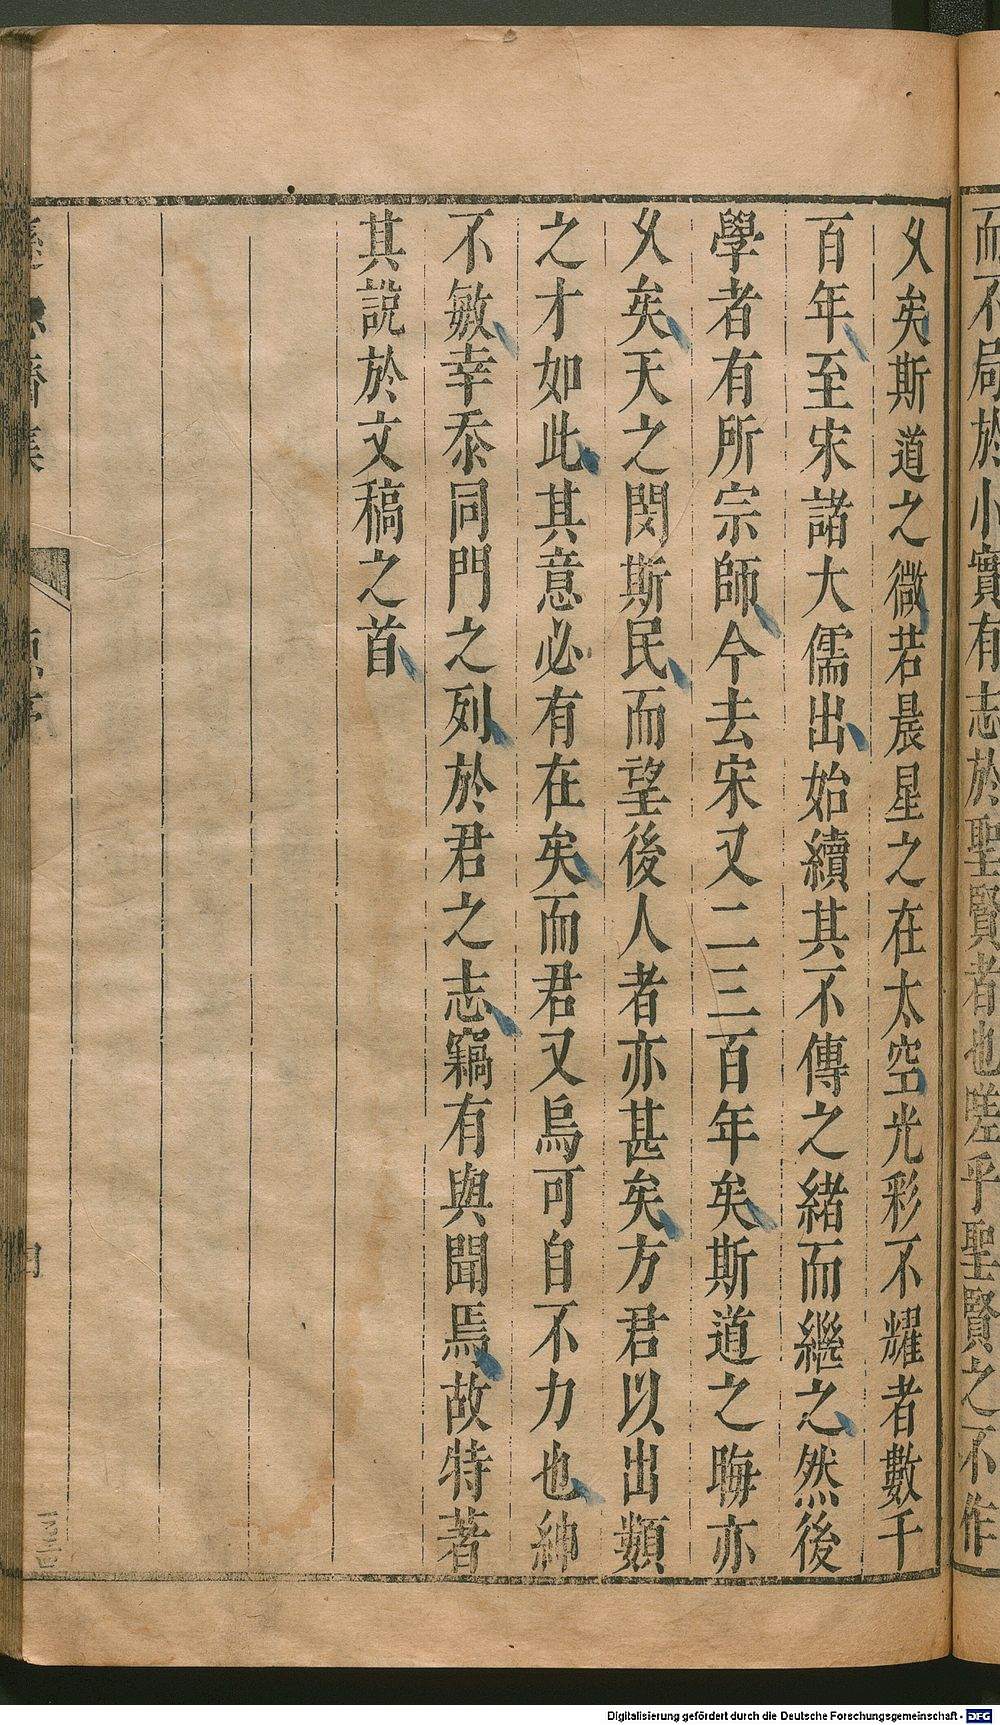 而不局於小實有志於聖賢者也嗟乎聖賢之不作
乆矣斯道之微若晨星之在太空光彩不耀者數千
百年至宋諸大儒出始續其不傳之緒而繼之然後
學者有所宗師今去宋又二三百年矣斯道之晦亦
乆矣天之閔斯民而望後人者亦甚矣方君以出類
之才如此其意必有在矣而君又烏可自不力也紳
不敏幸忝同門之列於君之志竊有與聞焉故特著
其説於文稿之首
齋集
四
Digitalisierung gefördert durch die Deutsche Forschungsgemeinschaft - DFG